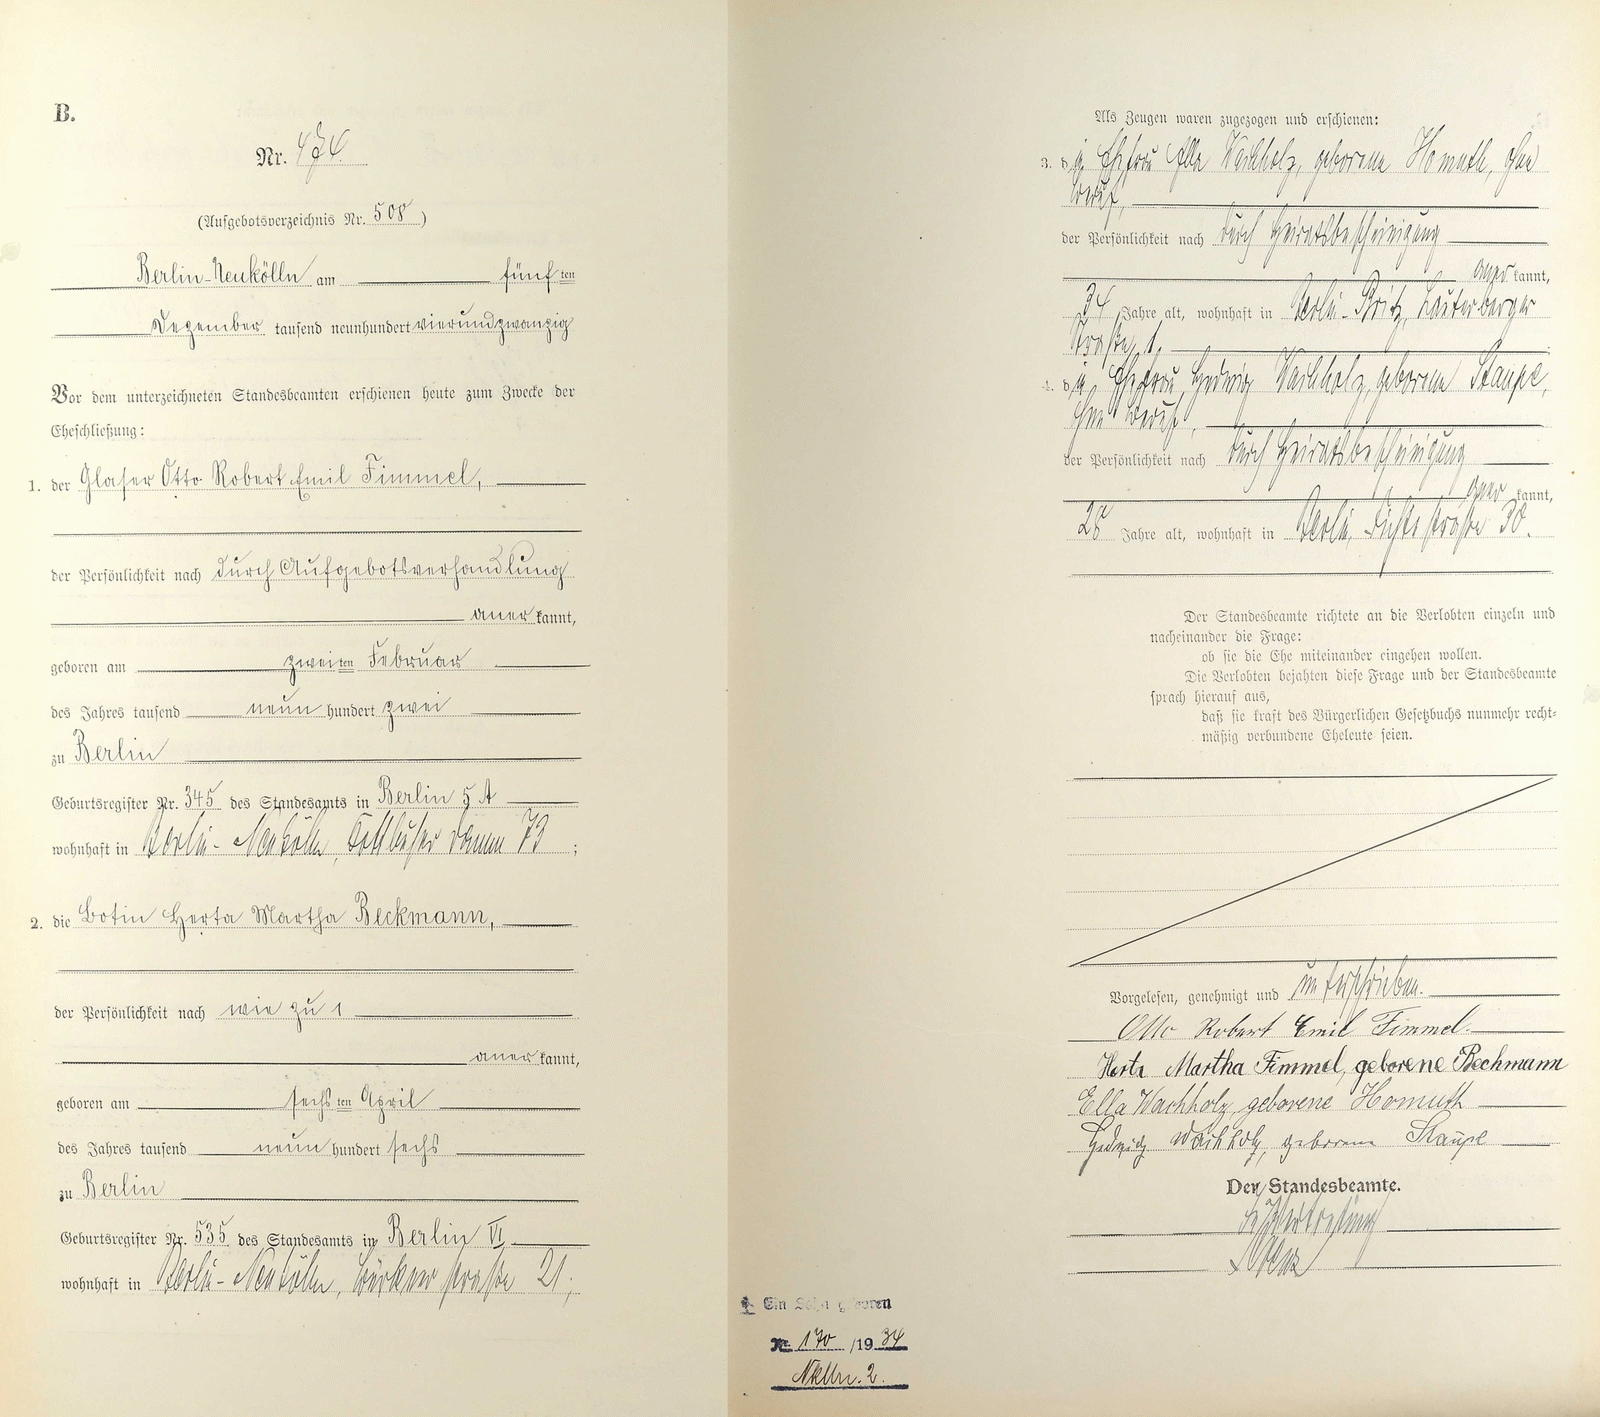 B.
Nr. 474.
(Aufgebotsverzeichnis Nr. 508)
Berlin-Neukölln am fünften
Dezember tausend neunhundert vierundzwanzig
Vor dem unterzeichneten Standesbeamten erschienen heute zum Zwecke der
Eheschließung:
1. der Glaser Otto Robert Emil Fimmel,
der Persönlichkeit nach durch Aufgebotsverhandlung
anerkannt,
geboren am zweiten Februar
des Jahres tausend neunhundert zwei
zu Berlin
Geburtsregister Nr. 345 des Standesamts in Berlin 5 A
wohnhaft in Berlin-Neukölln, Kottbuser Damm 73;
2. die Botin Herta Martha Beckmann,
der Persönlichkeit nach wie zu 1
anerkannt,
geboren am sechsten April
des Jahres tausend neunhundert sechs
zu Berlin
Geburtsregister Nr. 535 des Standesamts in Berlin VI
wohnhaft in Berlin-Neukölln, Bürknerstraße 21;
Als Zeugen waren zugezogen und erschienen:
3. die Ehefrau Ella Wachholz, geborene Homuth, ohne
Beruf,
der Persönlichkeit nach durch Heiratsbescheinigung
anerkannt,
34 Jahre alt, wohnhaft in Berlin-Britz, Lauterberger
Straße 1,
4. die Ehefrau Hedwig Wachholz, geborene Staupe,
ohne Beruf,
der Persönlichkeit nach durch Heiratsbescheinigung
anerkannt,
28 Jahre alt, wohnhaft in Berlin, Fichtestraße 30.
Der Standesbeamte richtete an die Verlobten einzeln und
nacheinander die Frage:
ob sie die Ehe miteinander eingehen wollen.
Die Verlobten bejahten diese Frage und der Standesbeamte
sprach hierauf aus,
daß sie kraft des Bürgerlichen Gesetzbuchs nunmehr recht-
mäßig verbundene Eheleute seien.
Vorgelesen, genehmigt und unterschrieben.
Otto Robert Emil Fimmel.
Herta Martha Fimmel, geborene Beckmann
Ella Wachholz geborene Homuth
Hedwig Wachholz, geborene Staupe
Der Standesbeamte.
In Vertretung
Ein Sohn geboren
Nr. 170/1934
Nklln. 2.